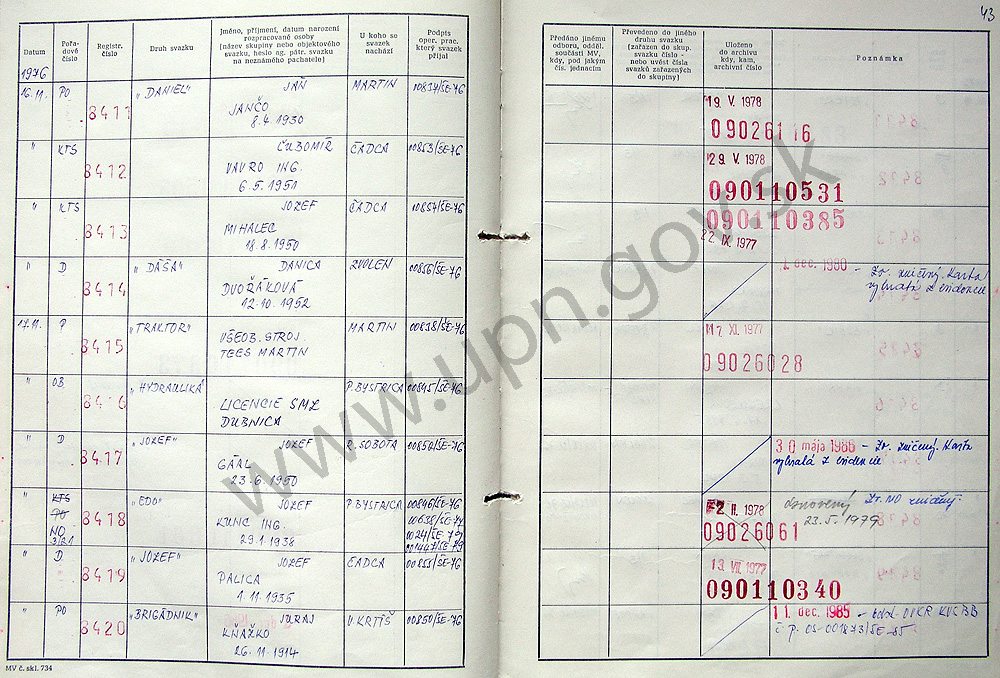 43
Datum
Pořadové číslo
Registr. číslo
Druh svazku
Jméno, příjmení, datum narození rozpracované osoby (název skupiny nebo objektového svazku, heslo ag. pátr. svazku na neznámého pachatele)
U koho se svazek nachází
Podpis oper. prac. který svazek přijal
Předáno jinému odboru, odděl. součásti MV, kdy, pod jakým čís. jednacím
Převedeno do jiného druhu svazku (zařazen do skup. svazku číslo - nebo uvést čísla svazků zařazených do skupiny)
Uloženo do archivu kdy, kam, archivní číslo
Poznámka
1976
16.11. PO 8411 „DANIEL" JÁN MARTIN 00834/ŠE-76 19. V. 1978
JANČO 09026116
8.4.1930
" KTS 8412 ĽUBOMÍR ČADCA 00853/ŠE-76 29. V. 1978
VAVRO ING. 090110531
6.5.1951
" KTS 8413 JOZEF ČADCA 00857/ŠE-76 090110385
MIHALEC 22. IX. 1977
18.8.1950
" D 8414 „DÁŠA" DANICA ZVOLEN 00856/ŠE-76 dec. 1990 - Zv. zničený. Karta
DVOŘÁKOVÁ vybratá z evidencie
12.10.1952
17.11. P 8415 „TRAKTOR" VŠEOB. STROJ. MARTIN 00838/ŠE-76 17. XI. 1977
TEES MARTIN 09026028
" OB 8416 „HYDRAULIKÁ P. BYSTRICA 00845/ŠE-76
LICENCIE SMZ
DUBNICA
" D 8417 „JOZEF" JOZEF R. SOBOTA 00854/ŠE-76 30 mája 1986 - Zv. zničený. Karta
GAÁL vybratá z evidencie
23.6.1950
" KTS 8418 „EDO" JOZEF P. BYSTRICA 00846/ŠE-76 2. II. 1978 Obnovený Zv. NO zničený
PO KUNC ING. 00638/ŠE-77 09026061 23.5.1979
NO 29.1.1938 0024/ŠE-79
3/21 001447/ŠE-79
" D 8419 „JOZEF" JOZEF ČADCA 00855/ŠE-76 13. VII. 1977
PALICA 090110340
1.11.1935
" PO 8420 „BRIGÁDNIK" JURAJ V. KRTÍŠ 00850/ŠE-76 11. dec. 1985 - KVCBB
KŇAŽKO č. p. OS-001873/ŠE-85
26.11.1914
MV č. skl. 734
www.upn.gov.sk